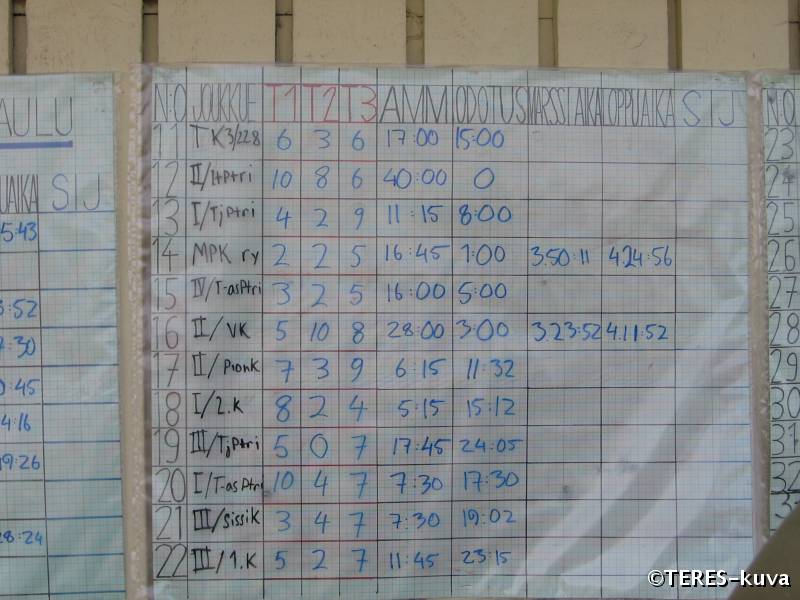 AULU
UAIKA SIJ
5:43
3:52
7:30
0:45
4:16
19:26
28:24
N:O JOUKKUE T1 T2 T3 AMM ODOTUS MARSSIAIKA LOPPUAIKA SIJ
11 TK3/228 6 3 6 17:00 15:00
12 II/ItPtri 10 8 6 40:00 0
13 I/TjPtri 4 2 9 11:15 8:00
14 MPK ry 2 2 5 16:45 1:00 3.50:11 4.24:56
15 IV/T-asPtri 3 2 5 16:00 5:00
16 II/VK 5 10 8 28:00 3:00 3.23:52 4.11:52
17 II/PionK 7 3 9 6:15 11:32
18 I/2.K 8 2 4 5:15 15:12
19 III/TjPtri 5 0 7 17:45 24:05
20 I/T-asPtri 10 4 7 7:30 17:30
21 III/SissiK 3 4 7 7:30 19:02
22 III/1.K 5 2 7 11:45 23:15
N:O
23
24
25
26
27
28
29
30
31
32
©TERES-kuva